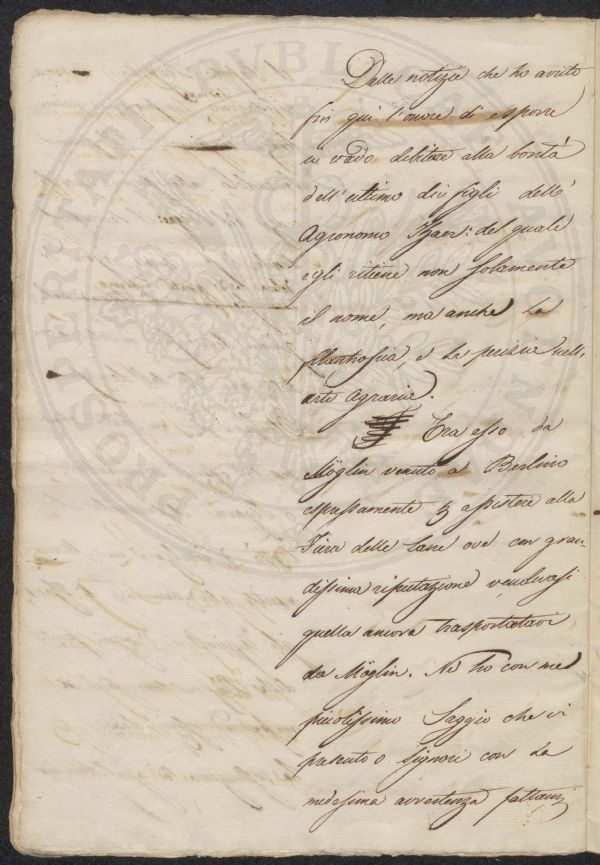 Delle notizie che ho avuto
fin qui l'onore di esporre
io vado debitore alla bontà
dell'ultimo dei figli dell'
Agronomo Thaer: del quale
egli ritiene non solamente
il nome, ma anche la
filantropia, e la perizia nell'
arte agraria.
Era esso da
Möglin venuto a Berlino
espressamente p assistere alla
Fiera delle Lane ove con gran-
dissima riputazione vendevasi
quella ancora trasportatavi
da Möglin. Ne ho con me
piccolissimo Saggio che vi
presento o Signori con la
medesima avvertenza fattami
PROSPERITATI PUBLICAE